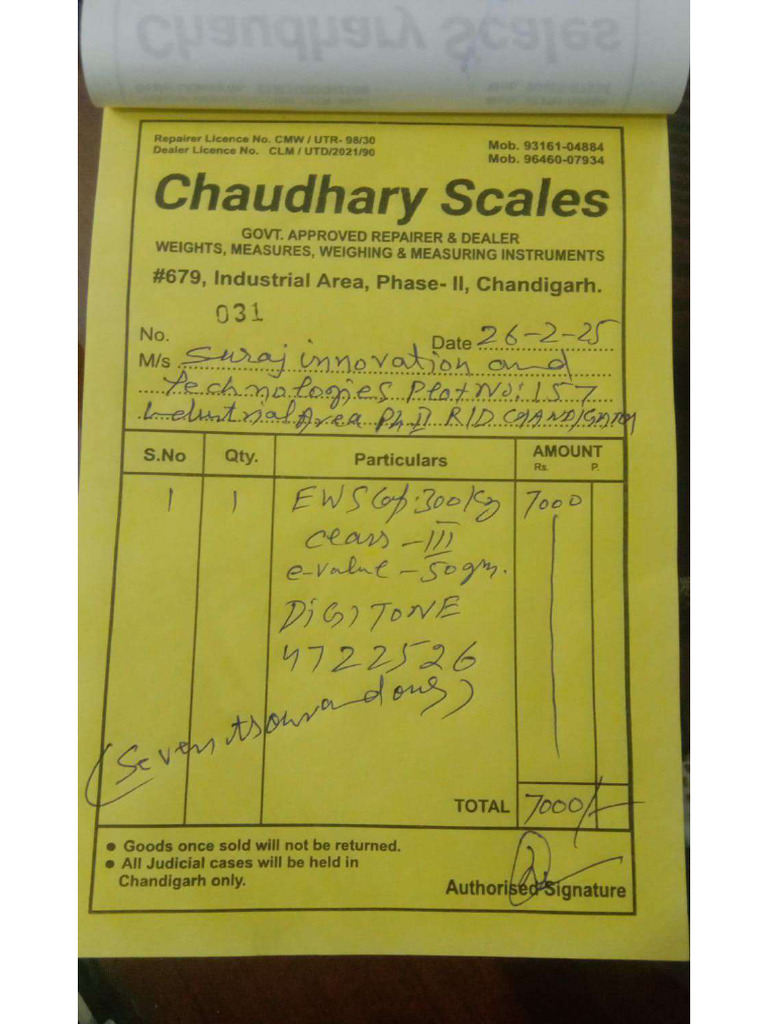 Repairer Licence No. CMW / UTR- 98/30
Dealer Licence No. CLM / UTD/2021/90
Mob. 93161-04884
Mob. 96460-07934
Chaudhary Scales
GOVT. APPROVED REPAIRER & DEALER
WEIGHTS, MEASURES, WEIGHING & MEASURING INSTRUMENTS
#679, Industrial Area, Phase- II, Chandigarh.
No. 031
Date 26-2-25
M/s Suraj innovation and
Technologies Plot No: 157
Industrial Area Ph II R/D CHANDIGARH
S.No Qty. Particulars AMOUNT
Rs. P.
1 1 EWS Cap: 300 Kg 7000
class - III
e-value - 50 gm.
DIGITONE
4722526
(Seven thousand only)
TOTAL 7000/-
• Goods once sold will not be returned.
• All Judicial cases will be held in
Chandigarh only.
Authorised Signature